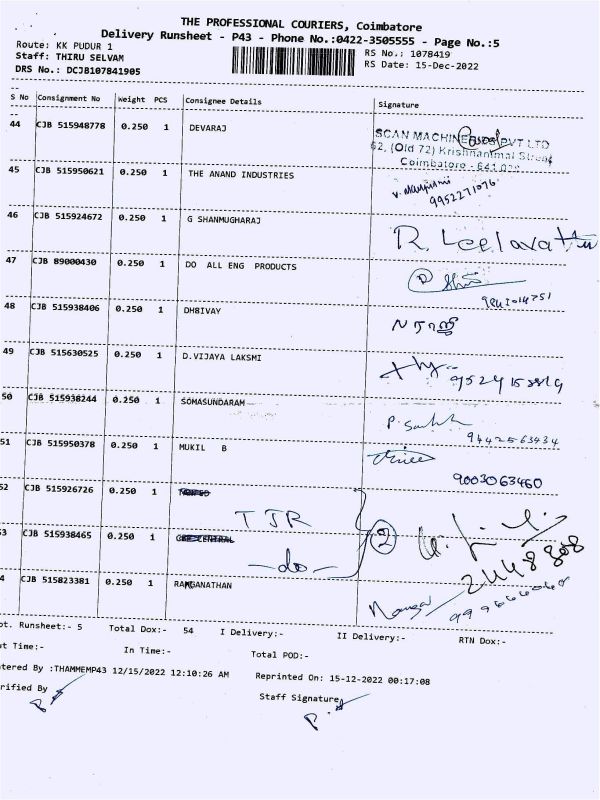 THE PROFESSIONAL COURIERS, Coimbatore
Delivery Runsheet - P43 - Phone No.:0422-3505555 - Page No.:5
Route: KK PUDUR 1
RS No.: 1078419
Staff: THIRU SELVAM
RS Date: 15-Dec-2022
DRS No.: DCJB107841905
S No Consignment No Weight PCS Consignee Details Signature
44 CJB 515948778 0.250 1 DEVARAJ
SCAN MACHINERIES PVT LTD
62, (Old 72) Krishnammal Street
Coimbatore - 641
45 CJB 515950621 0.250 1 THE ANAND INDUSTRIES
9952271076
46 CJB 515924672 0.250 1 G SHANMUGHARAJ
R. Leelavathi
47 CJB 89000430 0.250 1 DO ALL ENG PRODUCTS
48 CJB 515938406 0.250 1 DHBIVAY
49 CJB 515630525 0.250 1 D.VIJAYA LAKSMI
50 CJB 515938244 0.250 1 SOMASUNDARAM
9442563434
51 CJB 515950378 0.250 1 MUKIL B
9003063460
52 CJB 515926726 0.250 1
TJR
2
53 CJB 515938465 0.250 1
-do-
2448808
4 CJB 515823381 0.250 1 RANGANATHAN
ot. Runsheet:- 5 Total Dox:- 54 I Delivery:- II Delivery:- RTN Dox:-
ut Time:- In Time:- Total POD:-
tered By :THAMMEMP43 12/15/2022 12:10:26 AM Reprinted On: 15-12-2022 00:17:08
rified By Staff Signature